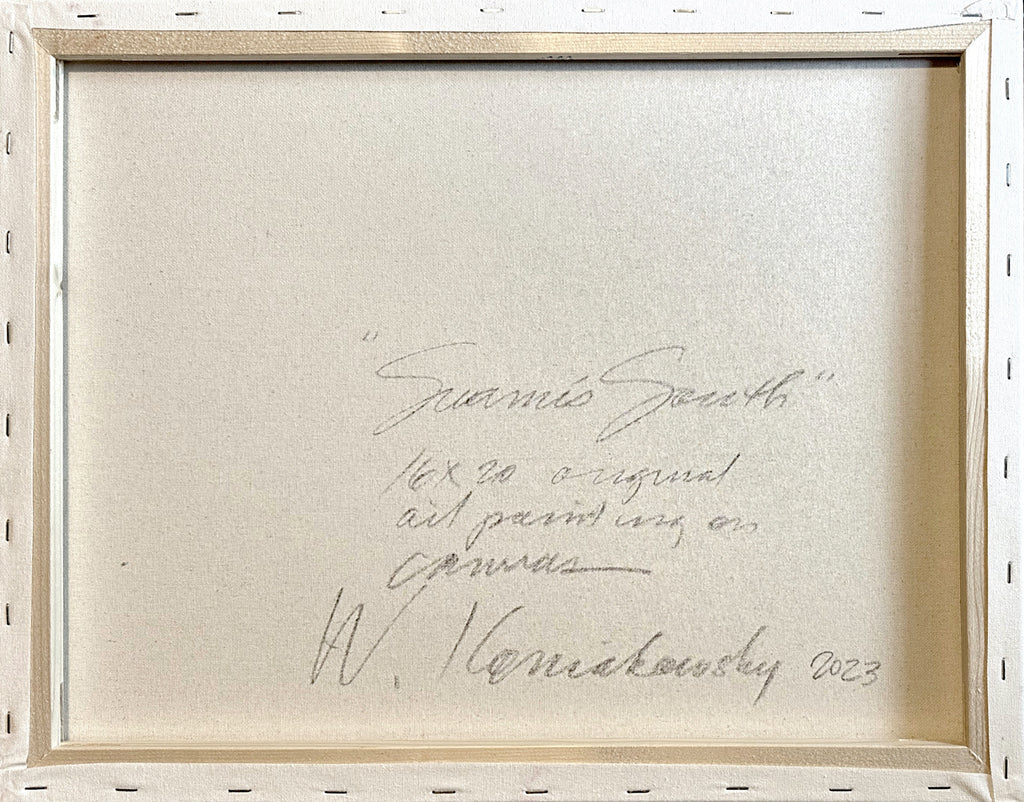 "Swamis South"
16x20 original
oil painting on
canvas
W. Koniakowsky 2023